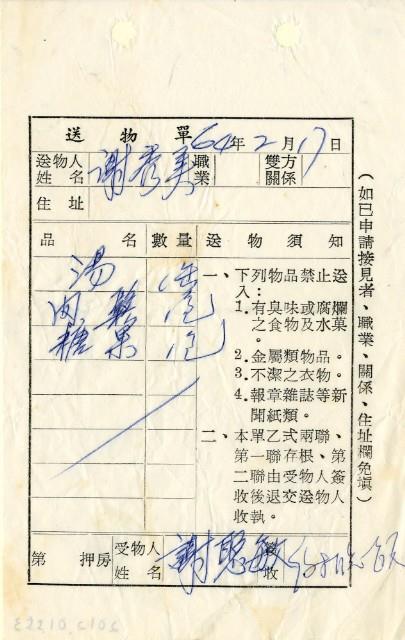 送物單 64年2月17日
送物人姓名 謝秀美 職業 雙方關係
住址
品名 數量 送物須知
湯
肉鬆
糖果
一、下列物品禁止送入：
1.有臭味或腐爛之食物及水菓。
2.金屬類物品。
3.不潔之衣物。
4.報章雜誌等新聞紙類。
二、本單乙式兩聯、第一聯存根、第二聯由受物人簽收後退交送物人收執。
第 押房 受物人姓名 謝聰敏 簽收
（如已申請接見者、職業、關係、住址欄免填）